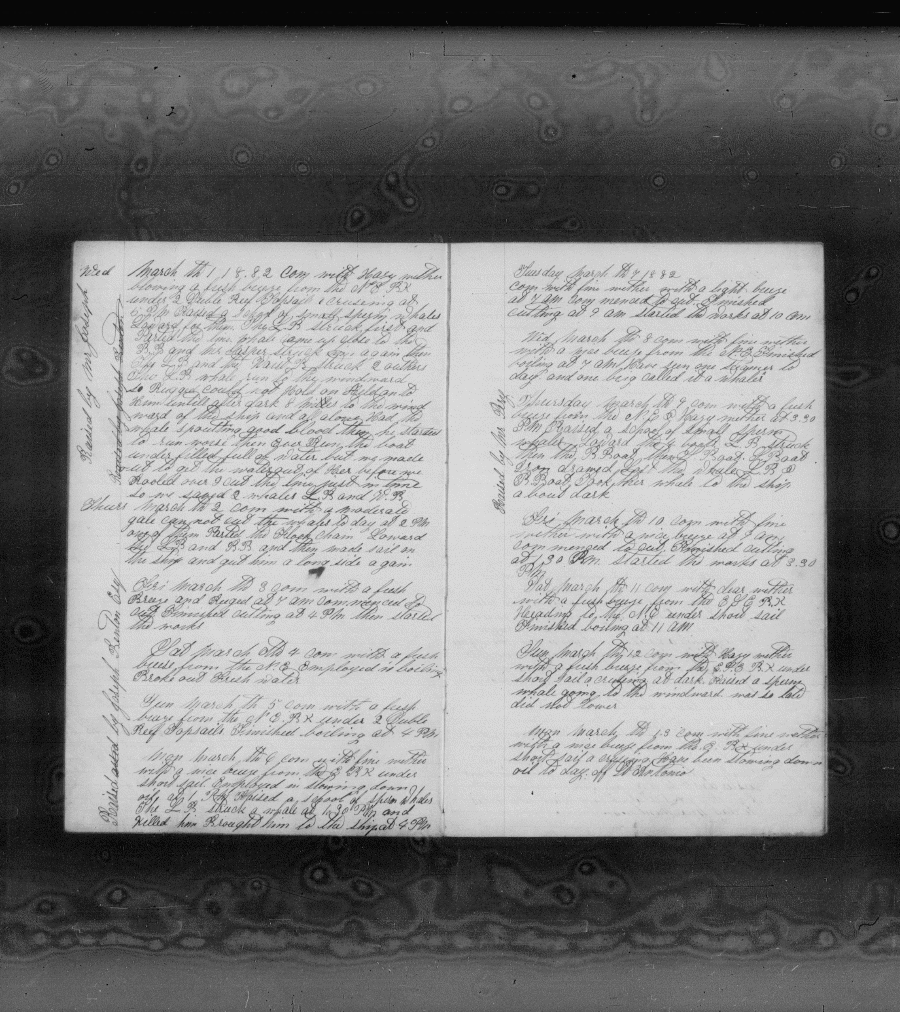 Wed March th 1, 18.82 Com with Havy wether
blowing a fresh breze from the N.E. RX
under 2 Duble Reef Topsails & crusing at
6 PM Raised a School of small sperm whales
Loward for them The L B struck first and
Parted the line whale came up close to the
B B and her struck him again then
the L B and the Waist B. struck 2 others
The L B whale run to the windward
so could not hold on
him untill after dark 4 miles to the wind
ward of the ship and a long had the
whale spouting good blood then he started
to run worse then Ever Run the boat
under filled full of water but we made
out to get the water out of Her before we
Rooled over & cut the line just in time
so we saved 2 whales L B and W B
Thurs March th 2 com with a moderate
gale can not cut the whales to day at 2 PM
one of them Parted the Flook chain Loward
the L B and B B and they made sail on
the ship and got him a long side again
Fri March th 3 com with a fresh
Breze and Ruged at 7 am commenced to
Cut Finnished cutting at 4 PM then started
the works
Sat March th 4 com with a fresh
breze from the N.E Employed in boiling
Broke out Fresh water
Sun March th 5 com with a fresh
breze from the N.E. RX under 2 Duble
Reef Topsails Finished boiling at 4 PM
Mon March th 6 com with fine wether
with a nice breze from the E RX under
short sail. Employed in stowing down
oil at 1 PM Raised a school of sperm whales
The L B struck a whale at 1.30 PM and
Killed him Brought him to the ship at 4 PM
Raised by Mr Joseph
Raised by Joseph Kenton Esq
Tuesday March th 7 1882
com with fine wether with a light breze
at 7 am Com menced to cut Finished
cutting at 9 am started the works at 10 am
Wed March th 8 com with fine wether
with a nice breze from the N.E Finished
boiling at 7 AM Have seen one
day and one brig called it a whaler
Thursday march th 9 com with a fresh
breze from the N E & Havy wether at 3.30
PM Raised a school of small sperm
whales Loward the 4 boats L B struck
then the B Boat Then W Boat L Boat
Iron drawed Lost the whale L B &
B Boat Took ther whale to the ship
a bout dark
Raised by Mr Fry
Fri March th 10 com with fine
wether with a nice breze at 7 am
com menged to cut Finished cutting
at 1,30 PM. started the works at 3.30
PM
Sat March th 11 com with clear wether
with a fresh breze from the E.S.E RX
Heading to the N.E under short sail
Finished boiling at 11 AM
Sun March th 12 com with Havy wether
with a fresh breze from the E.S.E RX under
short sail & crusing at dark Raised a sperm
whale going to the windward was so late
did Not Lower
Mon March th 13 com with fine wether
with a nice breze from the E RX under
short sail & crusing Have been stowing down
oil to day off St Antonio